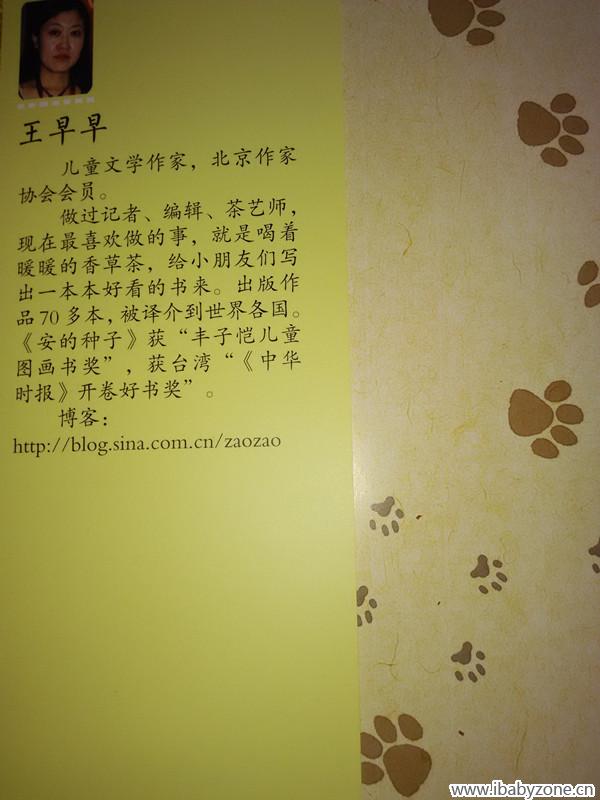 王早早
儿童文学作家，北京作家
协会会员。
做过记者、编辑、茶艺师，
现在最喜欢做的事，就是喝着
暖暖的香草茶，给小朋友们写
出一本本好看的书来。出版作
品70多本，被译介到世界各国。
《安的种子》获“丰子恺儿童
图画书奖”，获台湾“《中华
时报》开卷好书奖”。
博客：
http://blog.sina.com.cn/zaozao
www.ibabyzone.cn